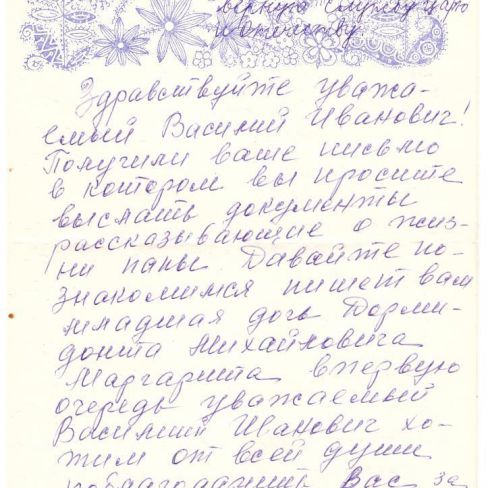 верную службу царю
и отечеству
Здравствуйте уважа-
емый Василий Иванович!
Получили ваше письмо
в котором вы просите
выслать документы
рассказывающие о жиз-
ни папы Давайте по-
знакомимся пишет вам
младшая дочь Дорми-
донта Михайловича
Маргарита впервую
очередь уважаемый
Василий Иванович хо-
тим от всей души
поблагодарить Вас за